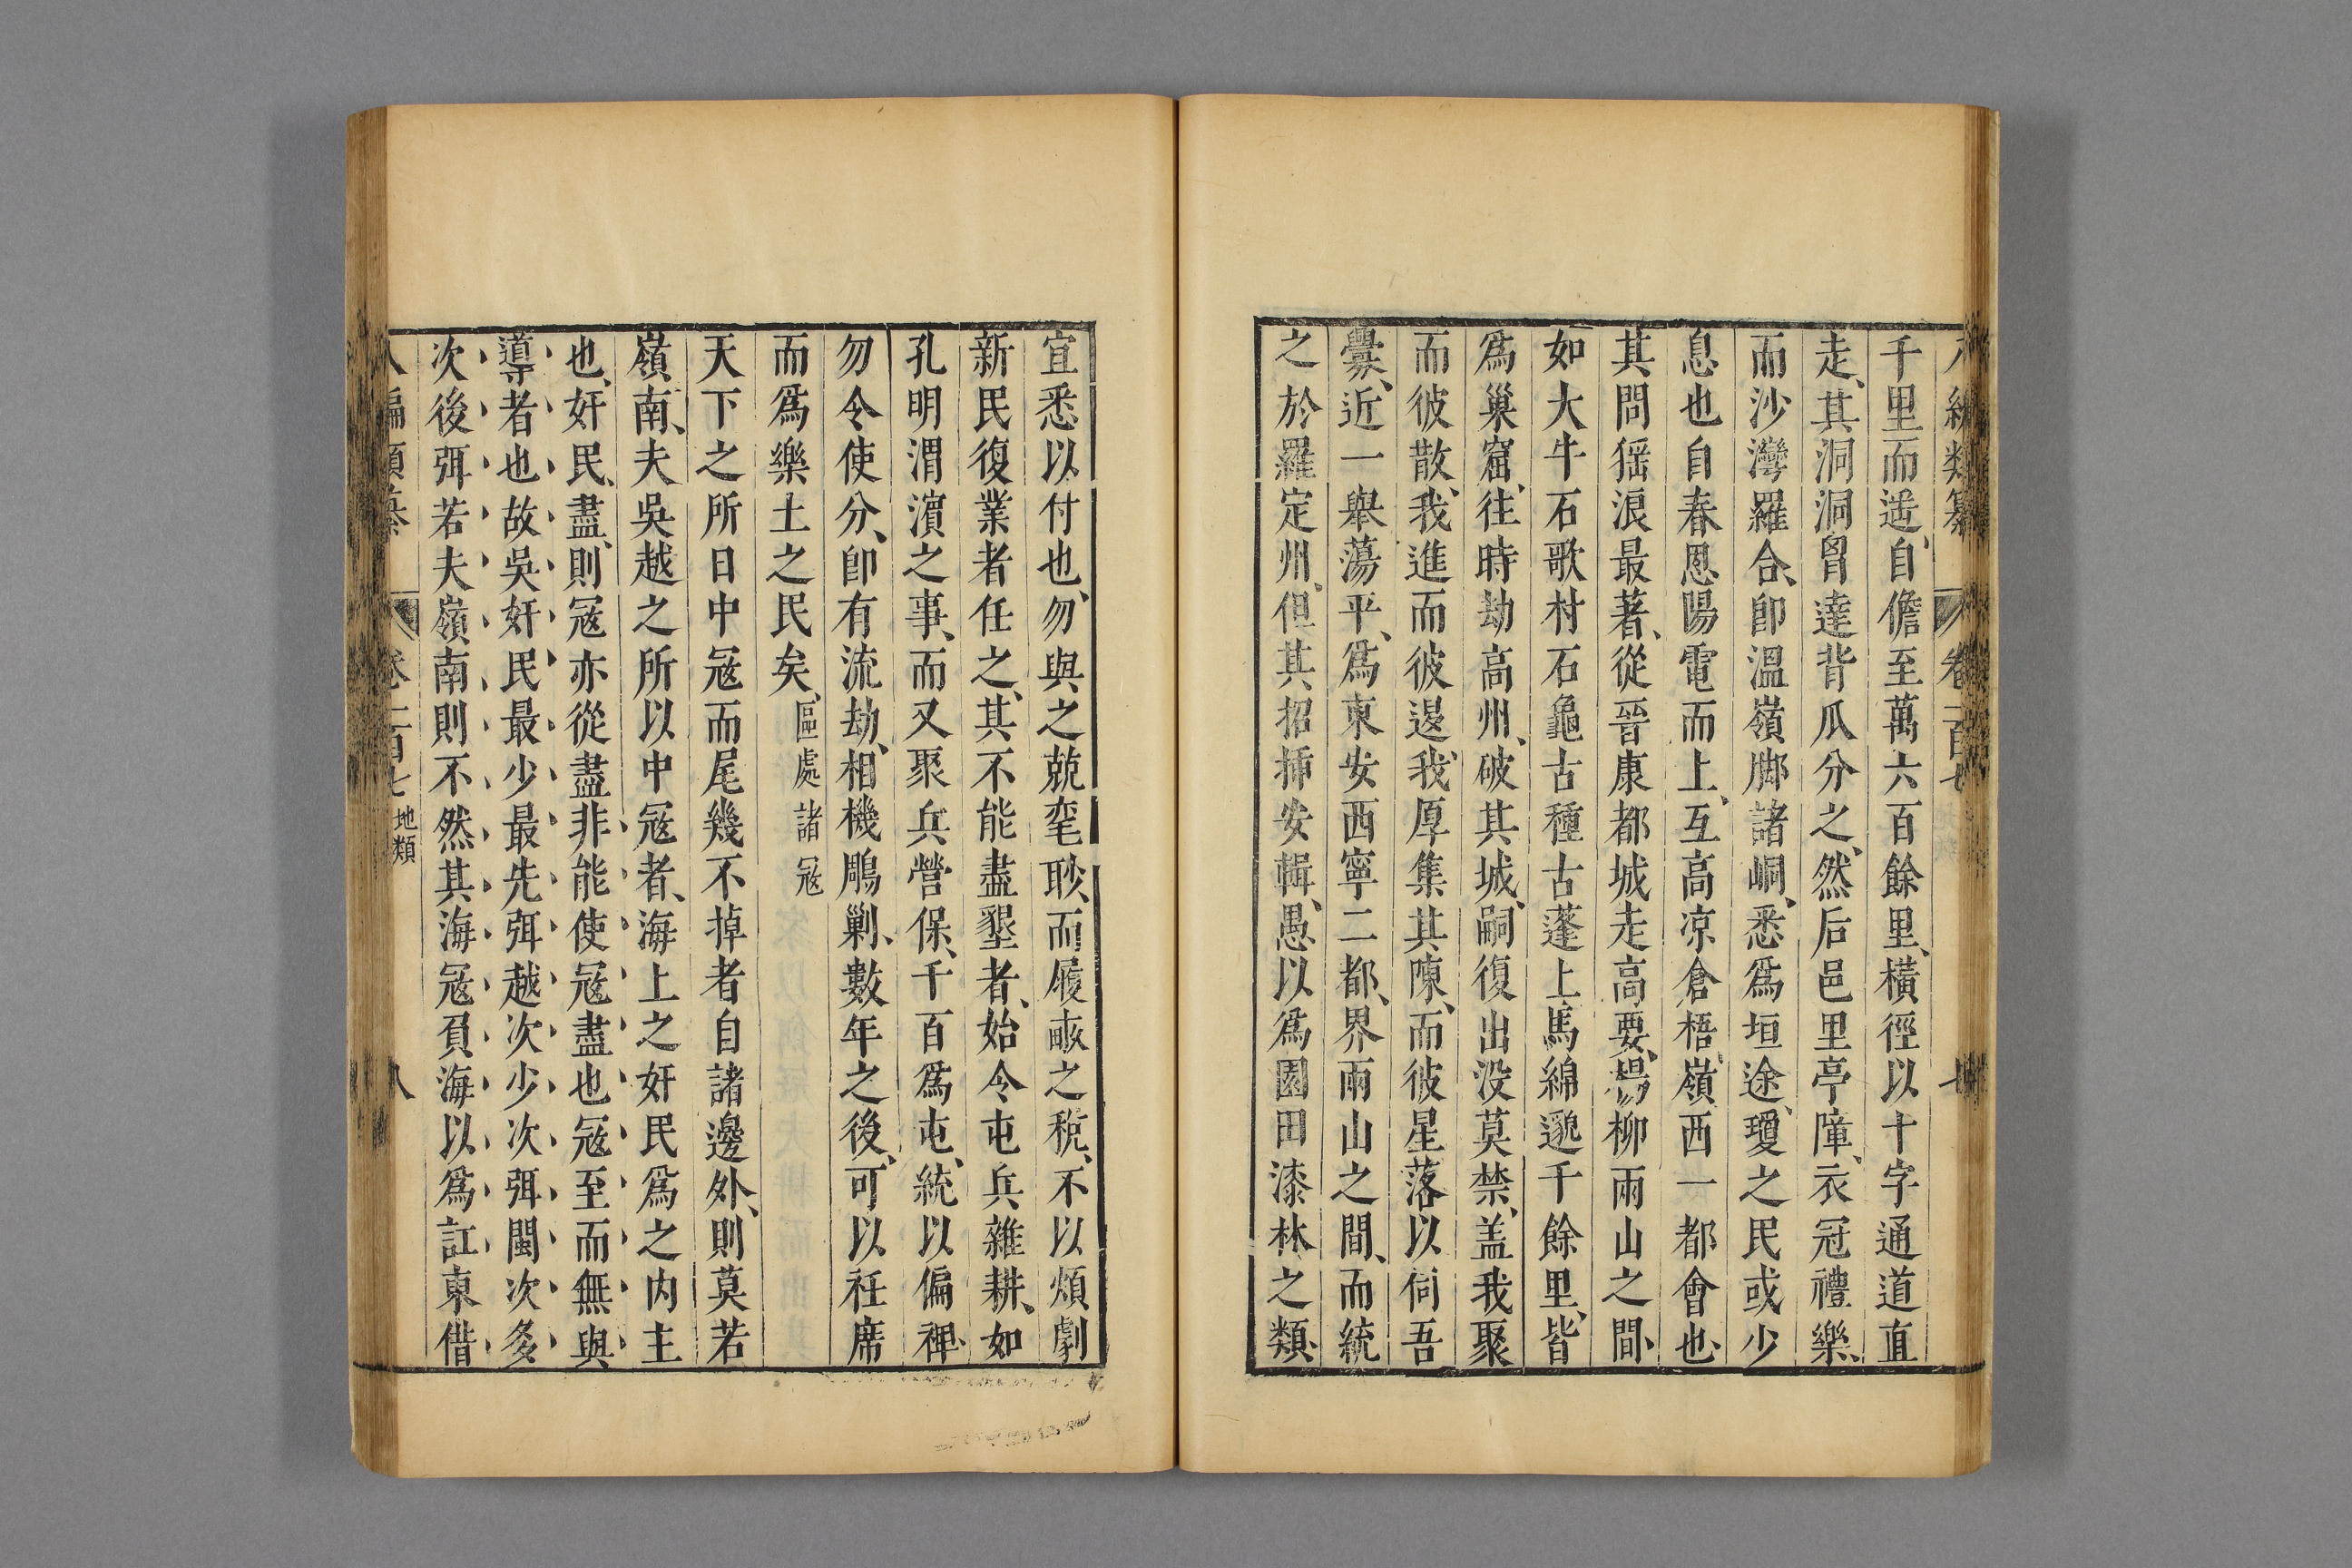 八編類纂 卷二百七 七
千里而遥、自儋至萬六百餘里、橫徑以十字通道直
走、其洞洞胷達背瓜分之、然后邑里亭障、衣冠禮樂、
而沙灣羅合、卽溫嶺脚諸峒、悉爲垣途、瓊之民或少
息也自春恩陽電而上、互高凉倉梧、嶺西一都會也、
其間猺浪最著、從晉康都城走高要、楊柳兩山之間、
如大牛石歌村石龜古種古蓬上馬綿邈千餘里、皆
爲巢窟、往時劫高州、破其城、嗣復出没莫禁、盖我聚
而彼散、我進而彼退、我厚集其陳、而彼星落以伺吾
釁、近一舉蕩平、爲東安西寧二都、界兩山之間、而統
之於羅定州、但其招挿安輯、愚以爲園田漆林之類、
宜悉以付也、勿與之兢秏耖、而履畝之稅、不以煩劇
新民復業者任之、其不能盡墾者、始令屯兵雜耕、如
孔明渭濱之事、而又聚兵營保、千百爲屯、統以偏裨、
勿令使分、卽有流劫、相機鵰剿、數年之後、可以衽席
而爲樂土之民矣、區處諸寇
天下之所日中寇而尾幾不掉者自諸邊外、則莫若
嶺南、夫吳越之所以中寇者、海上之奸民爲之内主
也、奸民、盡、則寇亦從盡非能使寇盡也寇至而無與
導者也故吳奸民最少最先弭越次少次弭閩次多
次後弭若夫嶺南則不然其海寇負海以爲訌東借
八編類纂 卷二百七 地類 八